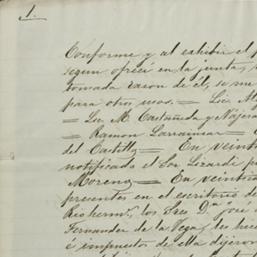 1.
Conforme y al exhibir el p
segun ofrecí en la junta, s
tomada razon de él, se me
para otros usos.= Lic. M
= Lic. M. Castañeda y Najera
= Ramon Larrainzar = 
del Castillo = En veint
notificado el Sor Lizardi p
Moreno = En veintio
presentes en el escritorio d
Rio herms. los Sres D. José
Fernandez de la Vega, les hice
é impuestos de ella dijeron